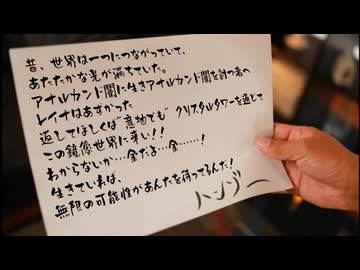 昔、世界は一つにつながっていて、
あたたかな光が満ちていた。
アナルカンド闇に生きアナルカンド闇を討つ者へ
レイナはあずかった
返してほしくば"意地でも"クリスタルタワーを通じて
この鏡像世界に来い!!
わからないか…金だよ…金……!
生きていれば、
無限の可能性があんたを待ってるんだ!
トンヅー